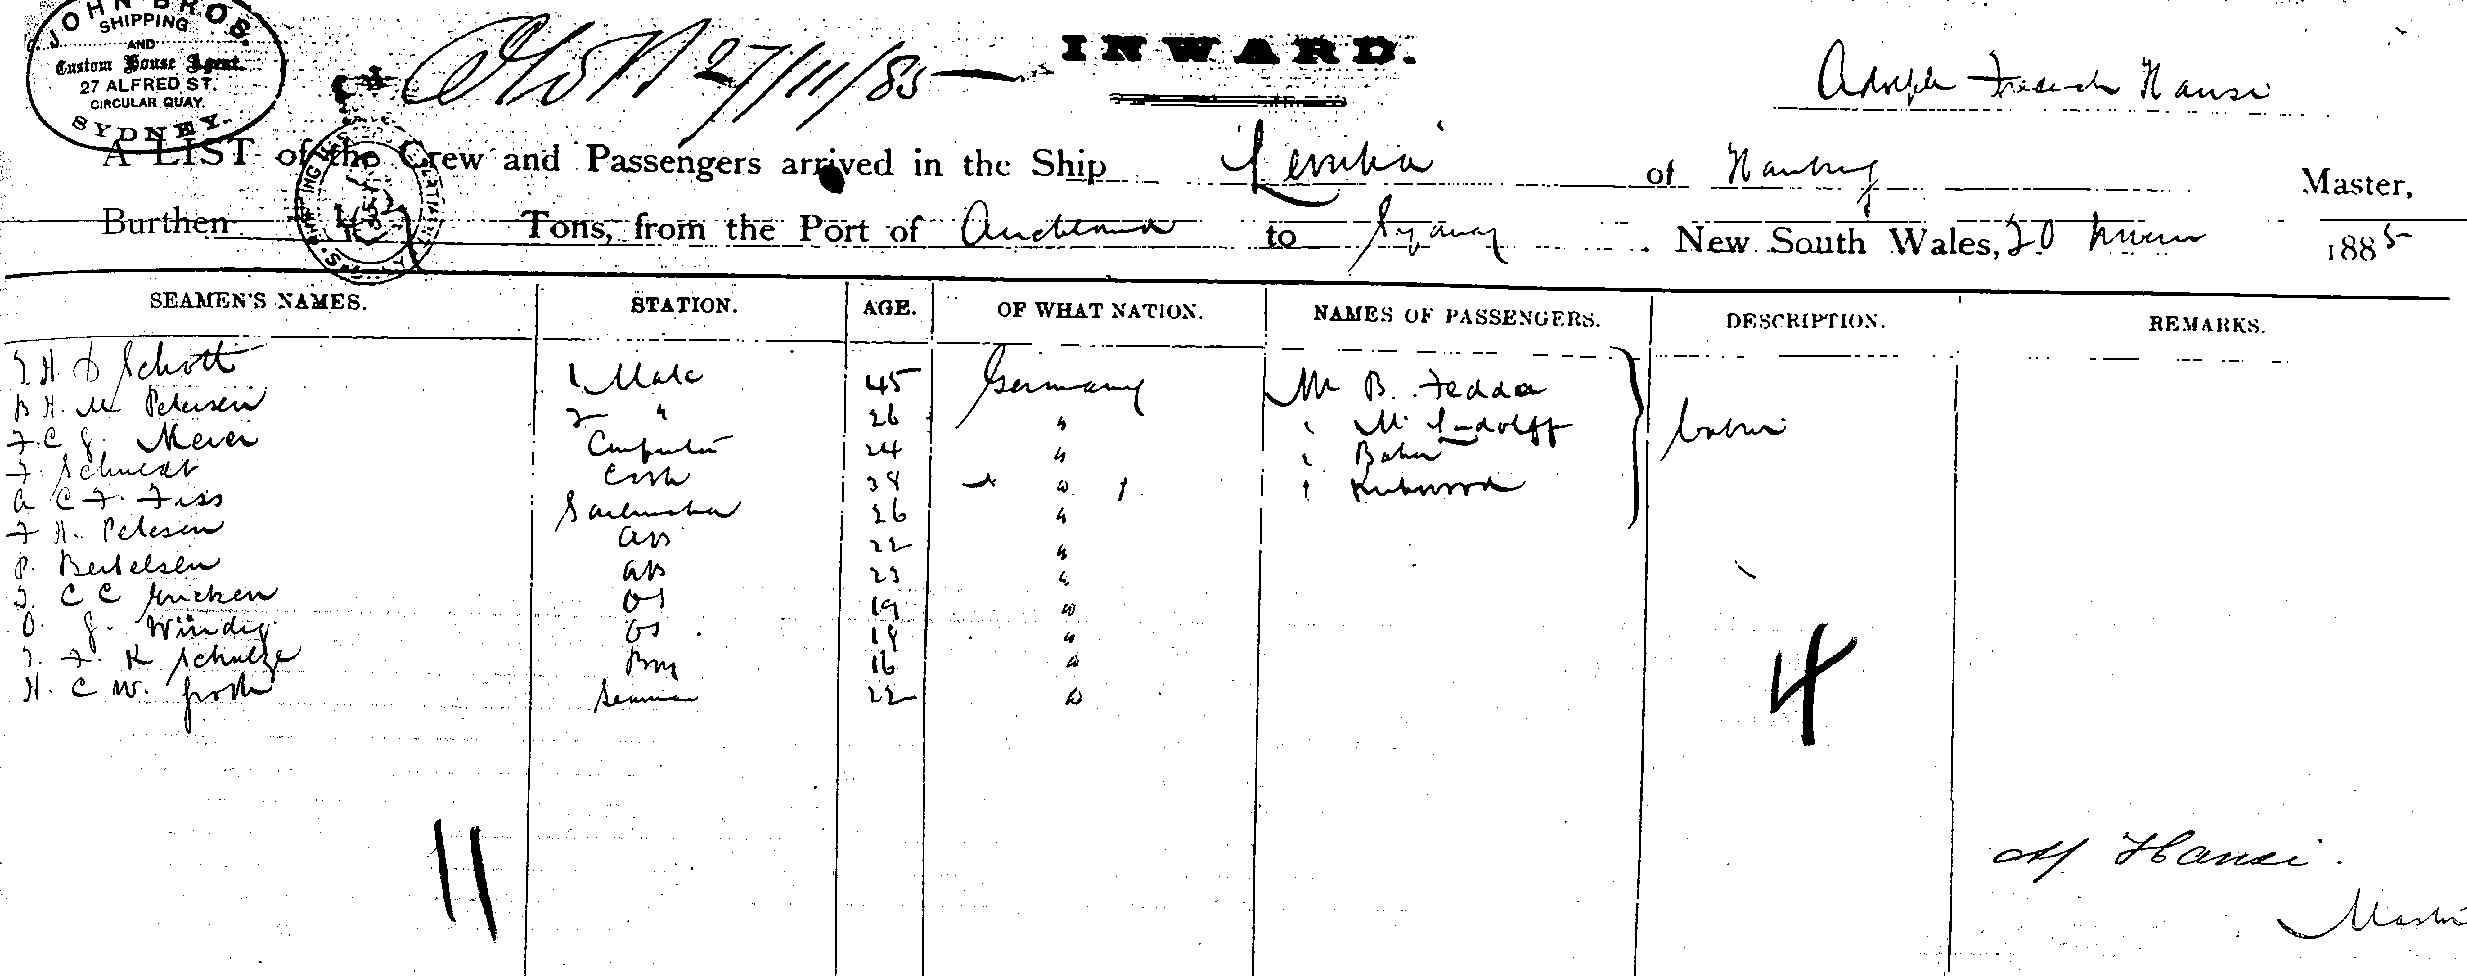 JOHN BROS.
SHIPPING
AND
Custom House Agent.
27 ALFRED ST.
CIRCULAR QUAY.
SYDNEY.
27/11/85
INWARD.
Adolph Hansi
A LIST of the Crew and Passengers arrived in the Ship of Hamburg Master,
Burthen Tons, from the Port of Auckland to Sydney New South Wales, 20 1885
SEAMEN'S NAMES. STATION. AGE. OF WHAT NATION. NAMES OF PASSENGERS. DESCRIPTION. REMARKS.
H Schott 1 Mate 45 Germany Mr B. Fedda
B H. M Petersen 2 " 26 " " M. Ludolff Cabin
F C J. Meier Carpenter 24 " " Baker
F. Schmidt Cook 38 " " Kirkwood
A C F. Fiss Sailmaker 26 "
F H. Petersen AB 22 "
P. Bertelsen AB 23 "
C C OS 19 "
O. J. Windig OS 18 "
F. K Schulze Boy 16 "
H. C W. Groth Seaman 22 "
4
11
Hansi.
Master